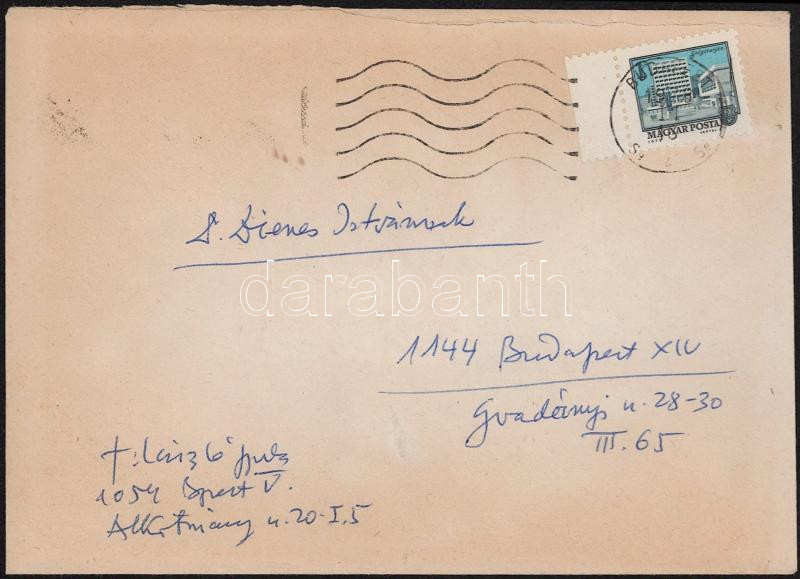 Salgótarján
MAGYAR POSTA
D. Dienes Istvánnak
darabanth
1144 Budapest XIV
Gvadányi u. 28-30
III. 65
f. László Gyula
1054 Bpest V.
Alkotmány u. 20. I. 5